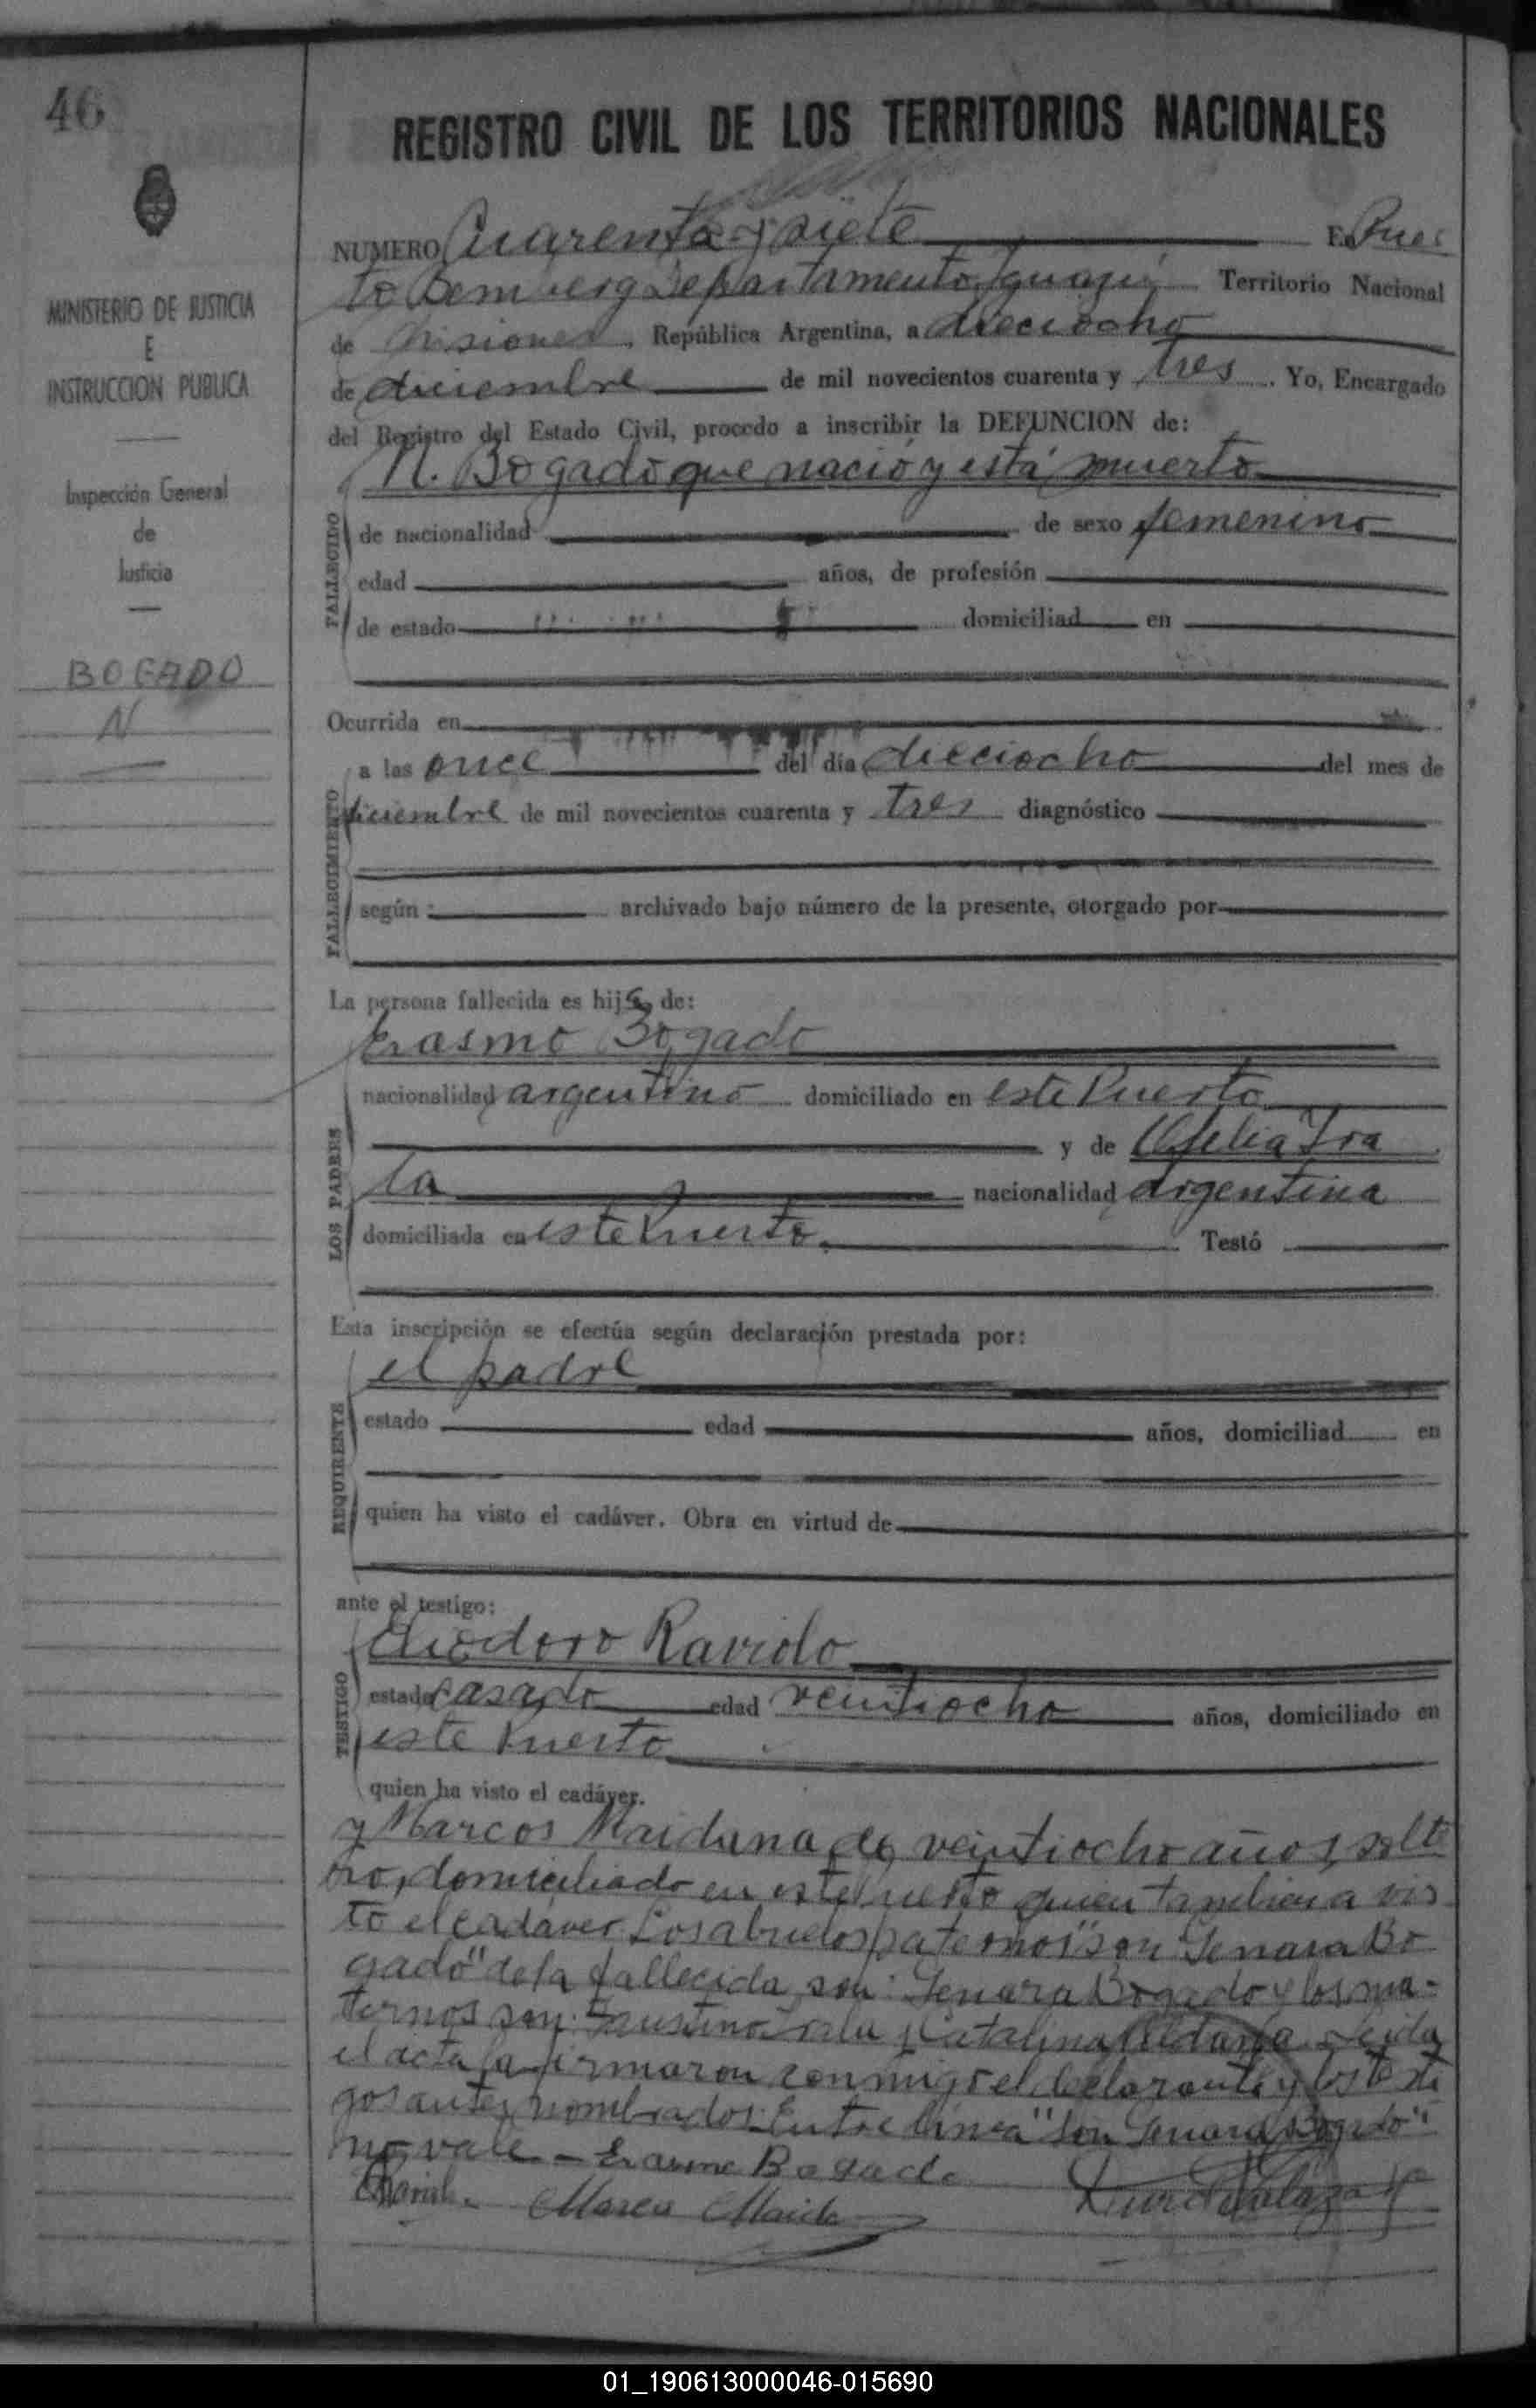 46
REGISTRO CIVIL DE LOS TERRITORIOS NACIONALES
MINISTERIO DE JUSTICIA
E
INSTRUCCION PUBLICA
Inspección General
de
Justicia
BOGADO
N
NUMERO Cuarenta y siete En Puer
to Bemberg Departamento Iguazú Territorio Nacional
de Misiones, República Argentina, a dieciocho
de diciembre de mil novecientos cuarenta y tres. Yo, Encargado
del Registro del Estado Civil, procedo a inscribir la DEFUNCION de:
N. Bogado que nació y está muerto
FALLECIDO
de nacionalidad de sexo femenino
edad años, de profesión
de estado domiciliad en
Ocurrida en
a las once del día dieciocho del mes de
FALLECIMIENTO
diciembre de mil novecientos cuarenta y tres diagnóstico
según archivado bajo número de la presente, otorgado por
La persona fallecida es hija de:
Erasmo Bogado
LOS PADRES
nacionalidad argentino domiciliado en este Puerto
y de Ofelia Ira
la nacionalidad argentina
domiciliada en este Puerto. Testó
Esta inscripción se efectúa según declaración prestada por:
el padre
REQUIRENTE
estado edad años, domiciliad en
quien ha visto el cadáver. Obra en virtud de
ante el testigo:
Eliodoro Raviolo
TESTIGO
estado casado edad veintiocho años, domiciliado en
este Puerto
quien ha visto el cadáver.
y Marcos Maidana de veintiocho años, solte
ro, domiciliado en este Puerto quien tambien a vis
to el cadáver. Los abuelos paternos "son Genara Bo
gado" de la fallecida son: Genara Bogado y los ma-
ternos son: Faustino Irala y Catalina Aldana. Leida
el acta la firmaron conmigo el declarante y los testi
gos antes nombrados. Entre linea "son Genara Bogado"
no vale. - Erasmo Bogado
Marcos Maida
01_190613000046-015690